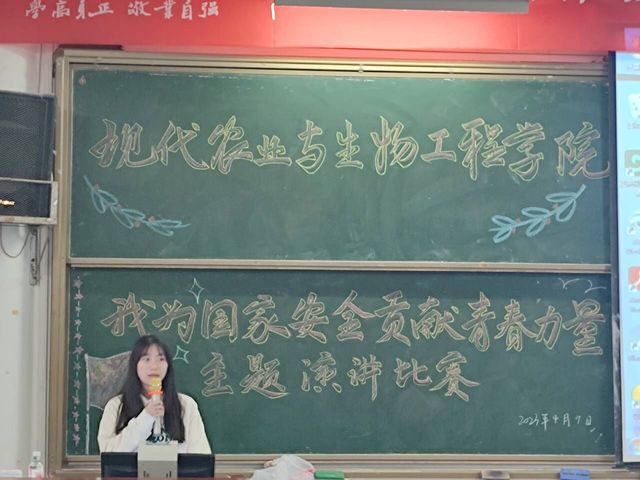 學高身正 敬業自强
现代农业与生物工程学院
我为国家安全贡献青春力量
主题演讲比赛
2023年4月9日